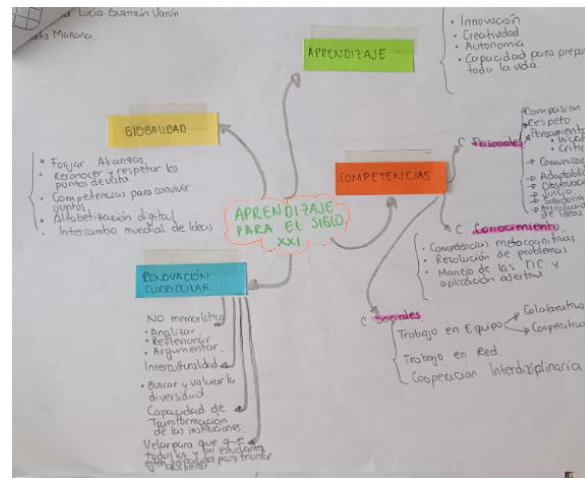 Lucia Guzmán Varón
Mañana.
APRENDIZAJE
• Innovación
• Creatividad
• Autonomía
• Capacidad para
toda la vida.
GLOBALIDAD
• Forjar Alianzas
• Reconocer y respetar los
puntos de vista
• Competencias para convivir
juntos
• Alfabetización digital
• Intercambio mundial de Ideas
APRENDIZAJE
PARA EL SIGLO
XXI
COMPETENCIAS
C. Personales
Compasión
Respeto
C. Conocimiento
• Competencias metacognitivas
• Resolución de problemas
• Manejo de las TIC y
aplicación asertiva
C. Sociales
Trabajo en Equipo
Colaborativo
Cooperativo
Trabajo en Red.
Cooperación Interdisciplinaria
RENOVACIÓN
CURRICULAR
NO memorístico
• Analizar
• Reflexionar
• Argumentar.
Interculturalidad
• Buscar y valorar la
diversidad
Capacidad de
Transformación
de las instituciones
Velar para que
todos los y las estudiantes
para triunfar